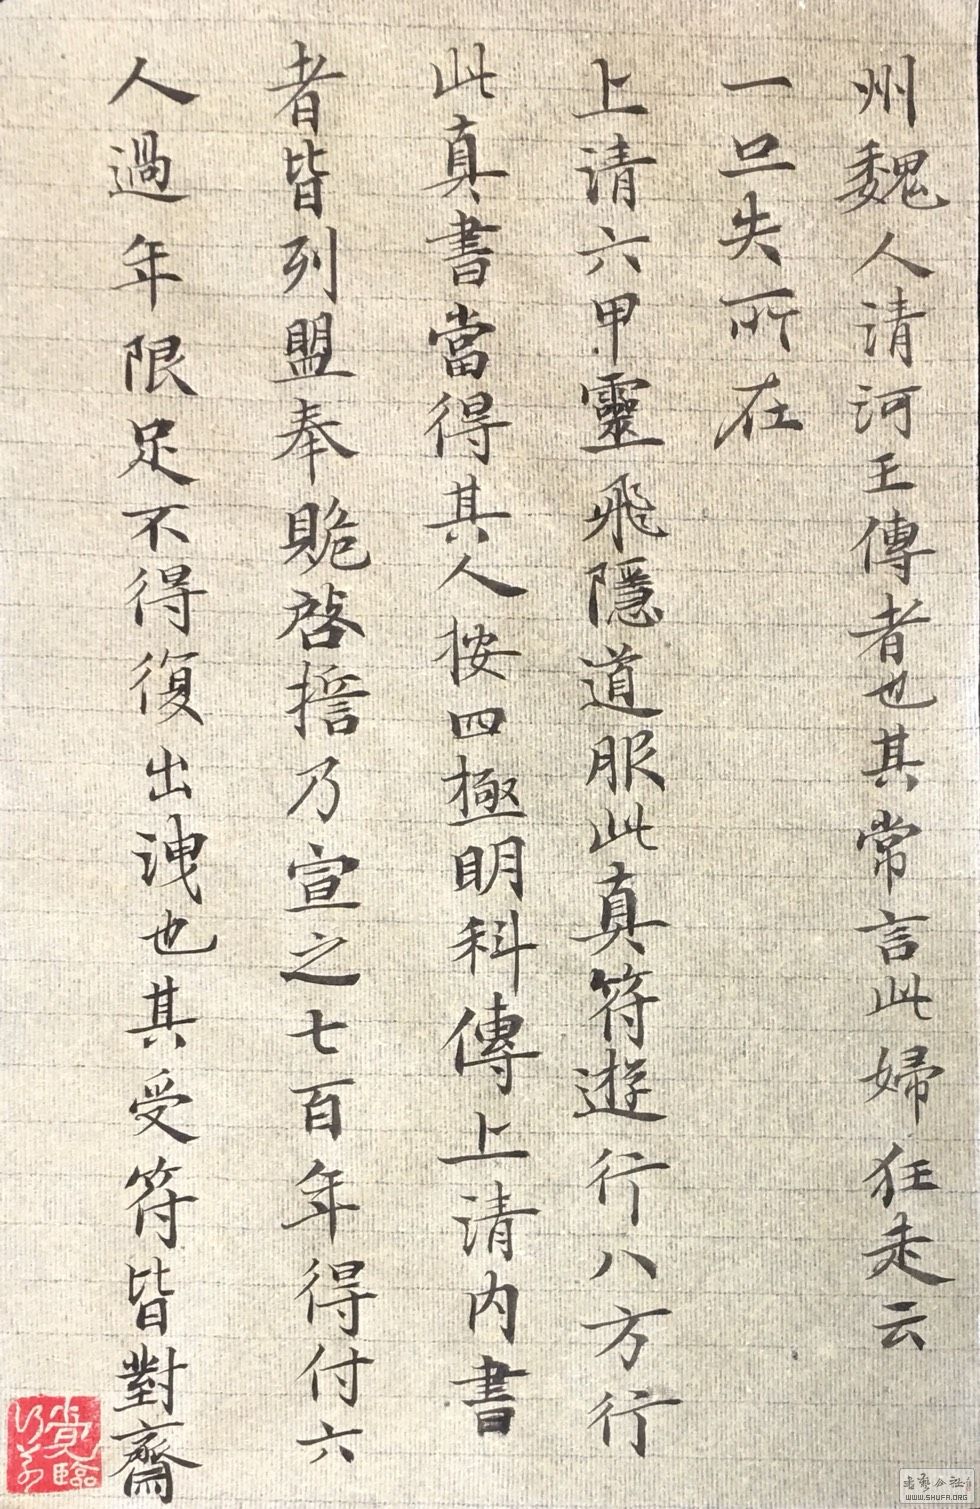 州魏人清河王傳者也其常言此婦狂走云
一旦失所在
上清六甲靈飛隱道服此真符遊行八方行
此真書當得其人按四極明科傳上清內書
者皆列盟奉貺啓擔乃宣之七百年得付六
人過年限足不得復出洩也其受符皆對齋
書藝公社
WWW.SHUFA.ORG